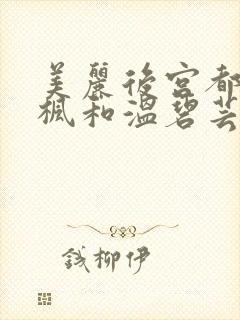 美麗後宮都
楓和溫碧芸
錢柳伊